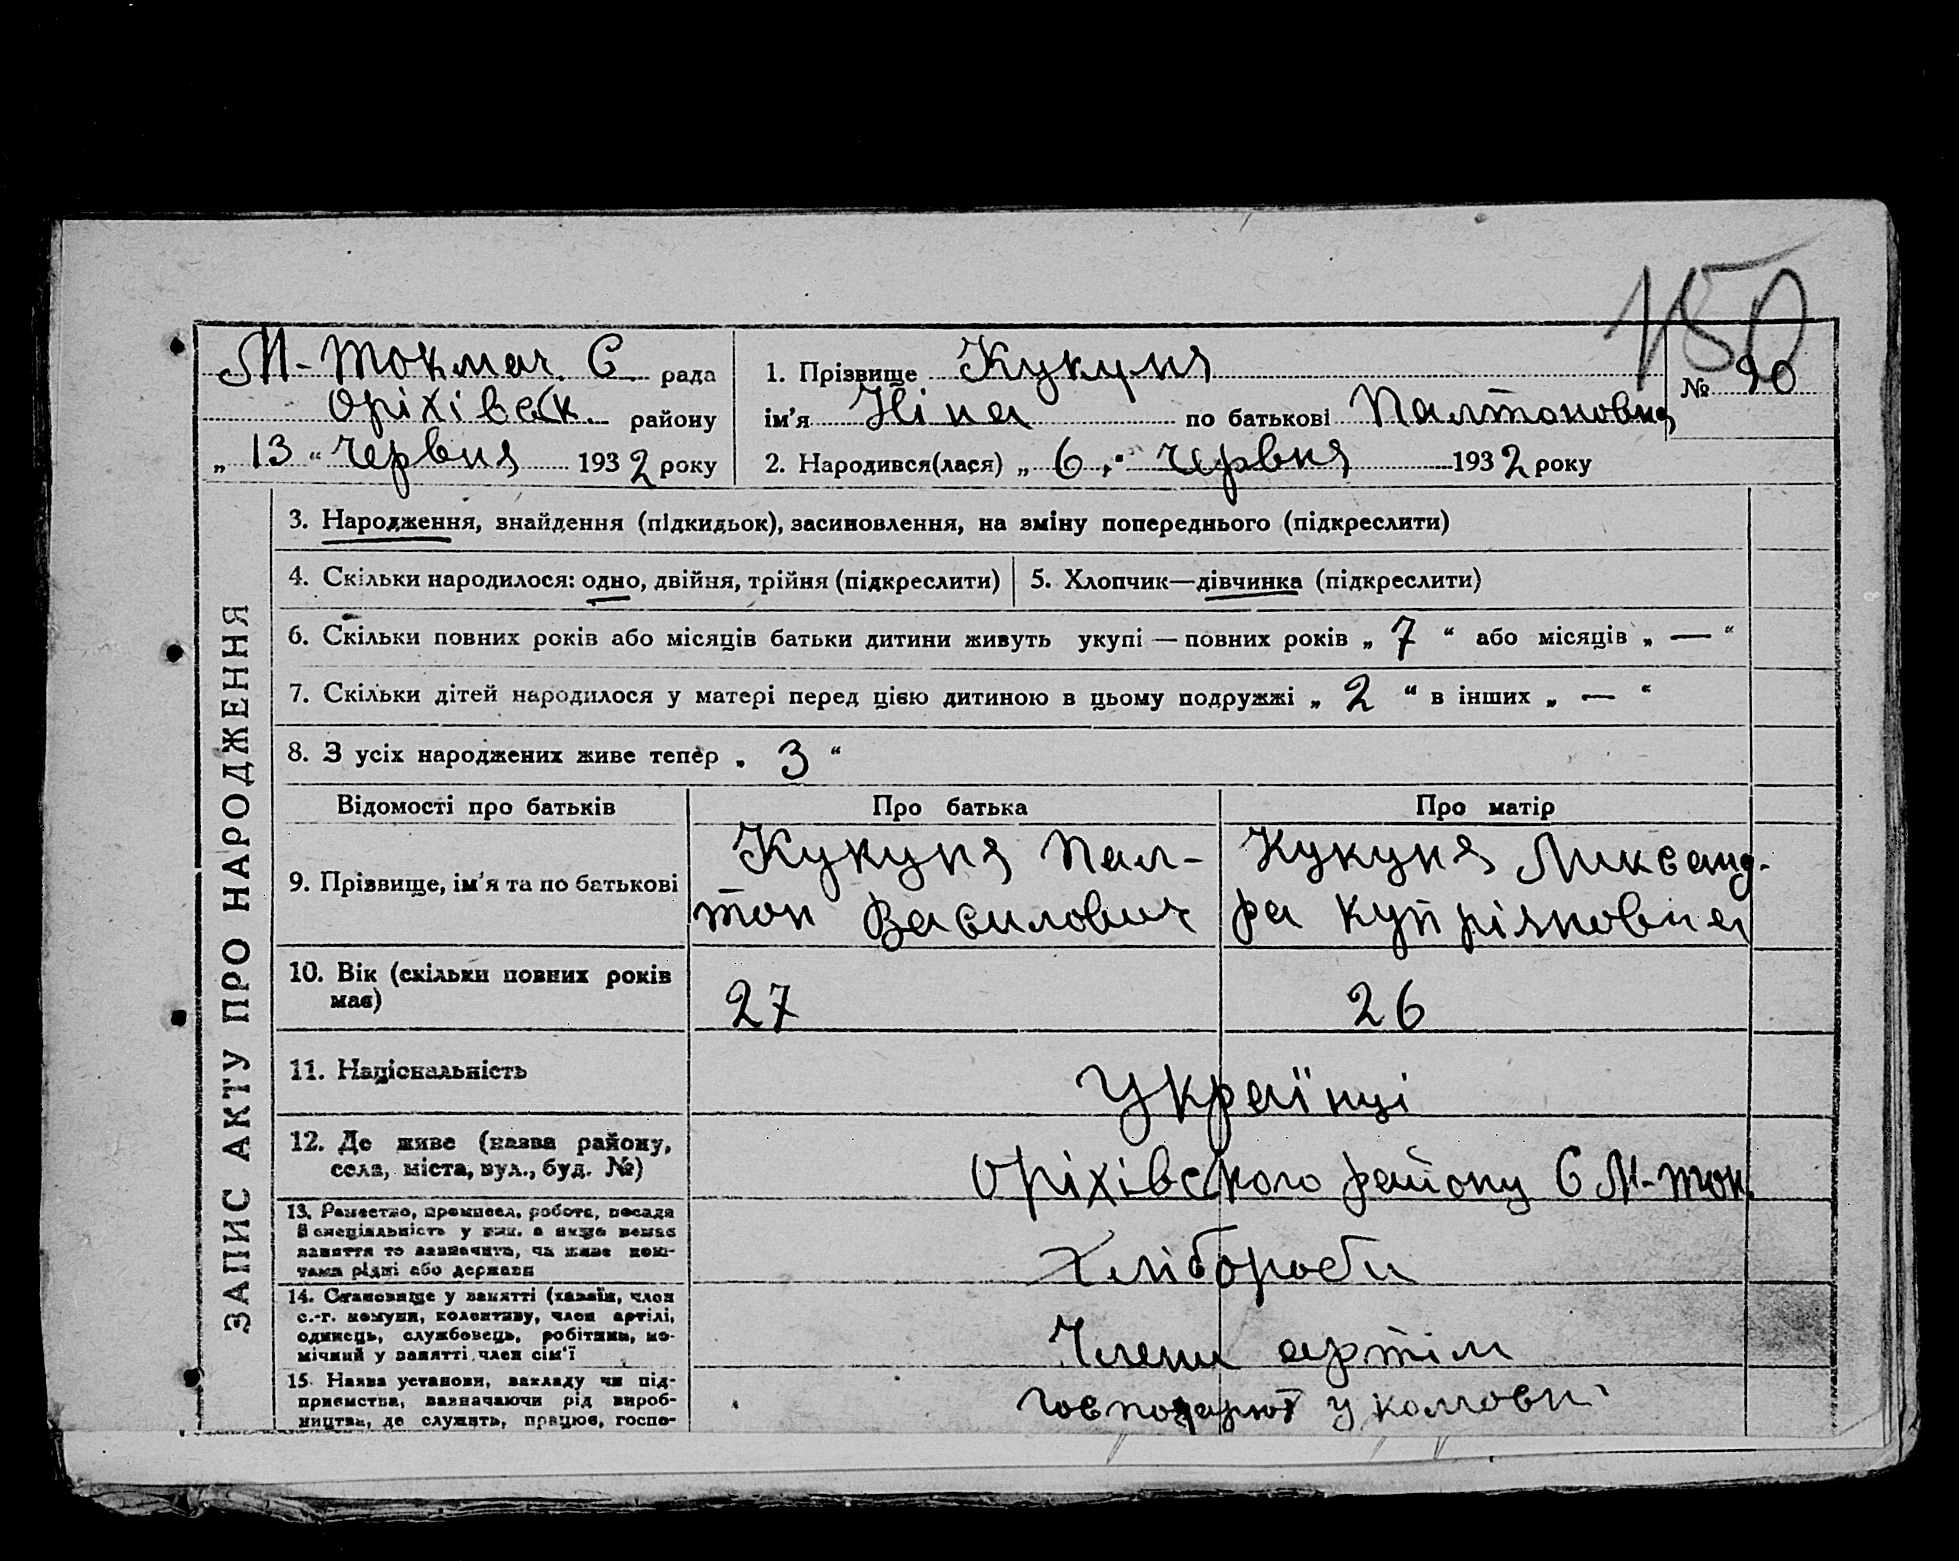 150
М-Токмач. С рада
Оріхівськ. району
„ 13 “ червня 1932 року
1. Прізвище Кукуня
ім’я Ніна по батькові Палтоновна
№ 90
2. Народився(лася) „ 6 “ червня 1932 року
ЗАПИС АКТУ ПРО НАРОДЖЕННЯ
3. Народження, знайдення (підкидьок), засиновлення, на зміну попереднього (підкреслити)
4. Скільки народилося: одно, двійня, трійня (підкреслити)
5. Хлопчик—дівчинка (підкреслити)
6. Скільки повних років або місяців батьки дитини живуть укупі — повних років „ 7 “ або місяців „ — “
7. Скільки дітей народилося у матері перед цією дитиною в цьому подружжі „ 2 “ в інших „ — “
8. З усіх народжених живе тепер „ 3 “
Відомості про батьків
Про батька
Про матір
9. Прізвище, ім’я та по батькові
Кукуня Пал-
тон Василович
Кукуня Ликсанд-
ра Купріяновна
10. Вік (скільки повних років
має)
27
26
11. Національність
Українці
12. Де живе (назва району,
села, міста, вул., буд. №)
Оріхівського району С М-Ток.
13. Ремество, промисел, робота, посада
й спеціяльність у них, а якщо немає
заняття то зазначити, чи живе кош-
тами рідні або держави
Хлібороби
14. Становище у занятті (хазяїн, член
с.-г. комуни, колективу, член артілі,
одинець, службовець, робітник, по-
мічний у занятті член сім’ї
Члени артіли
15. Назва установи, закладу чи під-
приємства, зазначаючи рід вироб-
ництва, де служить, працює, госпо-
Господарют у колгоспі